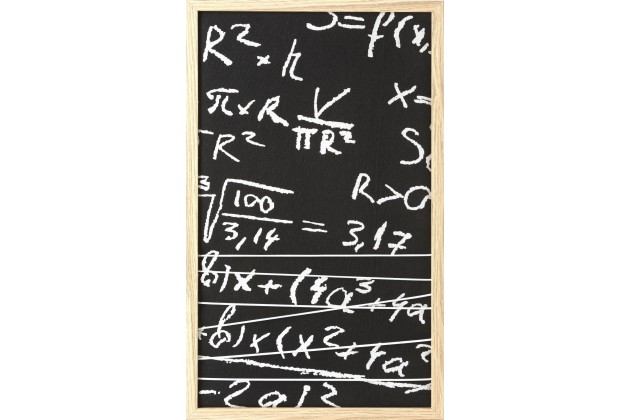 S=f(x,
R² × h
π×R V/πR² x=
R² S
R>0
³√100/3,14 = 3,17
b)x+(4a³+4a
b)x(x²+4a²
-2a)²